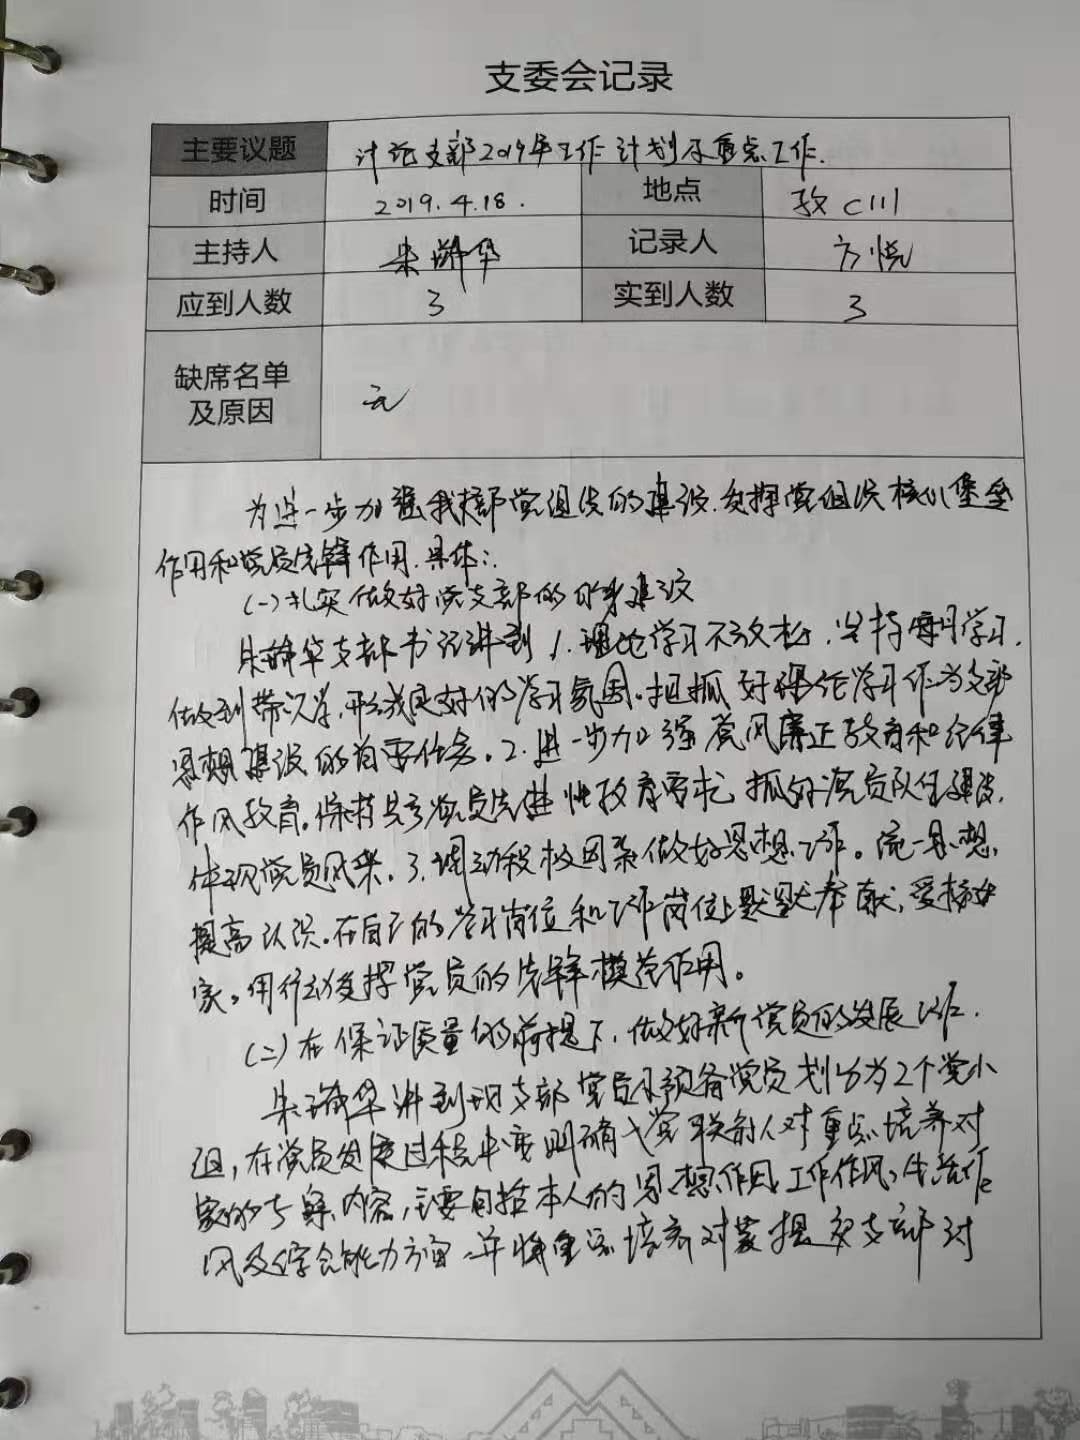 支委会记录
主要议题 讨论支部2019年工作计划及重点工作.
时间 2019.4.18. 地点 教C111
主持人 朱 华 记录人 方悦
应到人数 3 实到人数 3
缺席名单 无
及原因
为进一步加强我支部党组织的建设.发挥党组织核心堡垒
作用和党员先锋作用.具体:
(一)扎实做好党支部的自身建设
朱 华支部书记讲到 1.理论学习不放松,坚持每月学习,
做到带 学,形成良好的学习氛围.把抓好理论学习作为支部
思想建设的首要任务。2.进一步加强党风廉正教育和纪律
作风教育。保持共产党员先进性教育要求 抓好党员队伍建设,
体现党员风采。3.调动积极因素做好思想工作。统一思想
提高认识。在自己的学习岗位和工作岗位上默默奉献,爱校如
家。用行动发挥党员的先锋模范作用。
(二)在保证质量的前提下.做好新党员的发展工作.
朱 华讲到现支部党员及预备党员划分为2个党小
组,在党员发展过程中要明确入党联系人对重点培养对
象的考察内容,主要包括本人的思想作风、工作作风、生活作
风及综合能力方面 并将重点培养对象提交支部讨